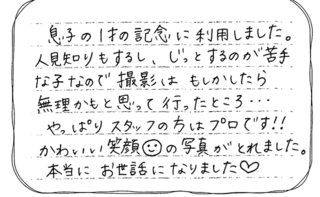 息子の1才の記念に利用しました。
人見知りもするし、じっとするのが苦手
な子なので撮影はもしかしたら
無理かもと思って行ったところ・・・
やっぱりスタッフの方はプロです!!
かわいい笑顔☺の写真がとれました。
本当にお世話になりました♡